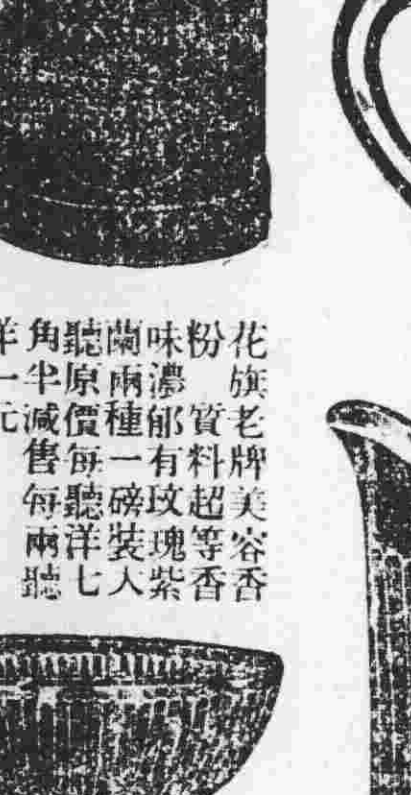 花旗老牌美容香
粉 質料超等香
味濃郁有玫瑰紫
蘭兩種一磅裝大
聽原價每聽洋七
角半減售每兩聽
洋一元